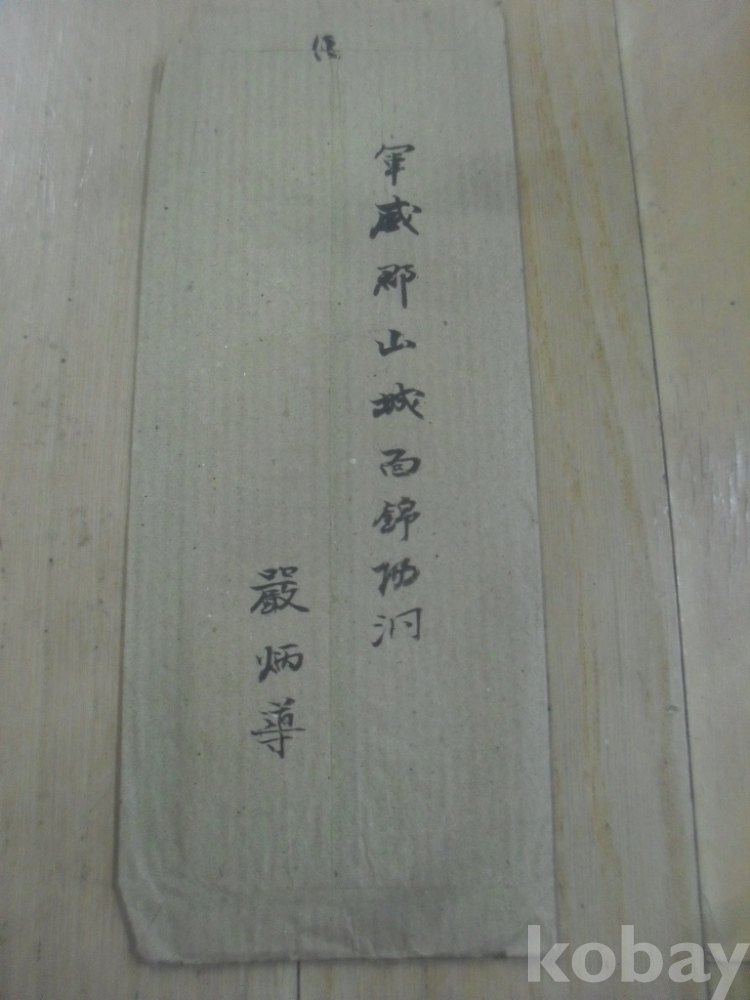 軍威郡山城面錦陽洞
嚴炳導
kobay